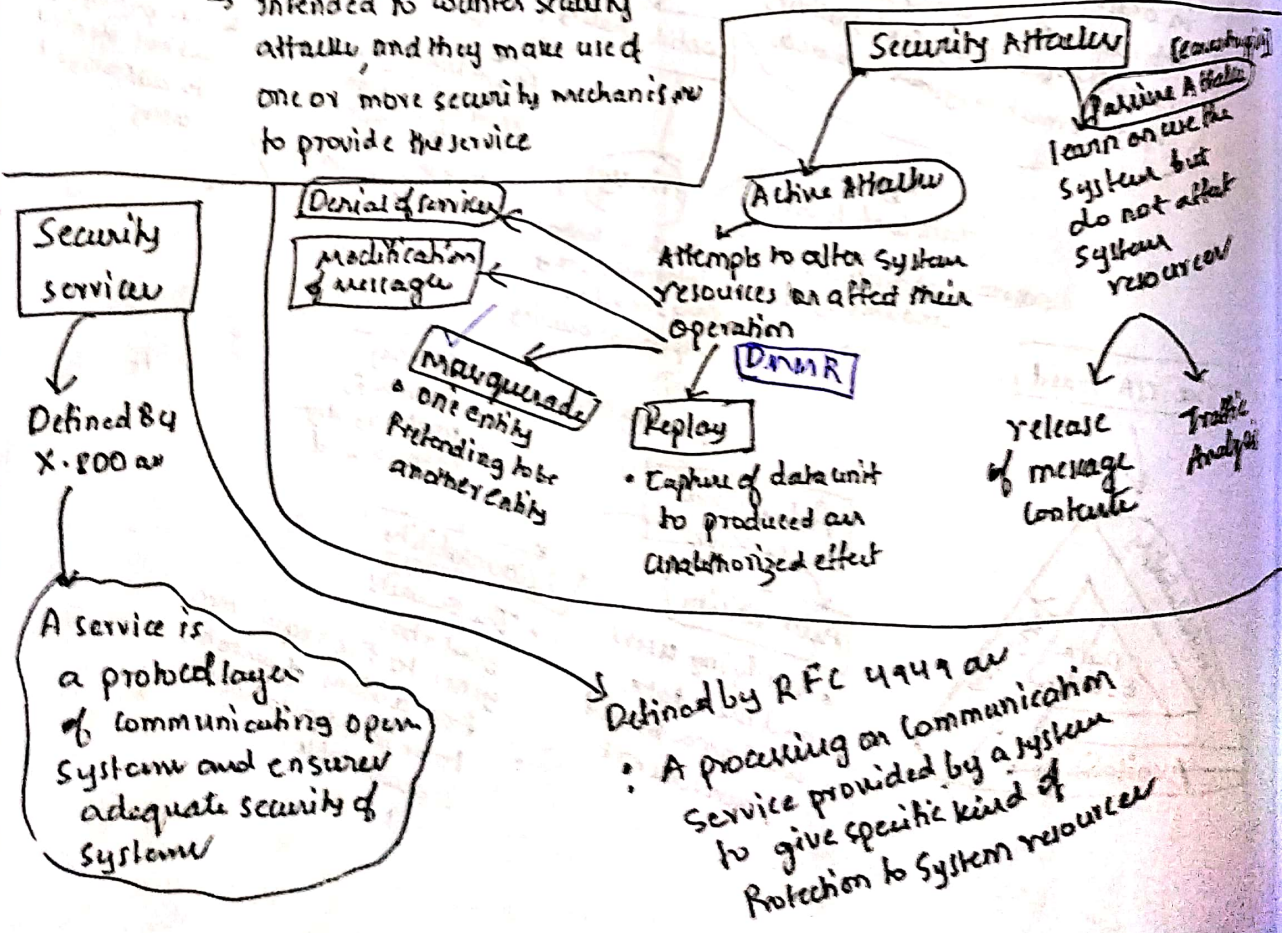 → intended to counter security
attacks, and they make use of
one or more security mechanisms
to provide the service
Security Attacks
Passive Attacks
learn or use the
system but
do not affect
system
resources
release
of message
contents
Traffic
Analysis
Active Attacks
Attempts to alter system
resources or affect their
operation
DMMR
Denial of services
Modification
of message
Masquerade
• one entity
Pretending to be
another entity
Replay
• Capture of data unit
to produced an
unauthorized effect
Security
services
Defined By
X.800 as
A service is
a protocol layer
of communicating open
systems and ensures
adequate security of
systems
Defined by RFC 4949 as
: A processing or communication
service provided by a system
to give specific kind of
Protection to system resources